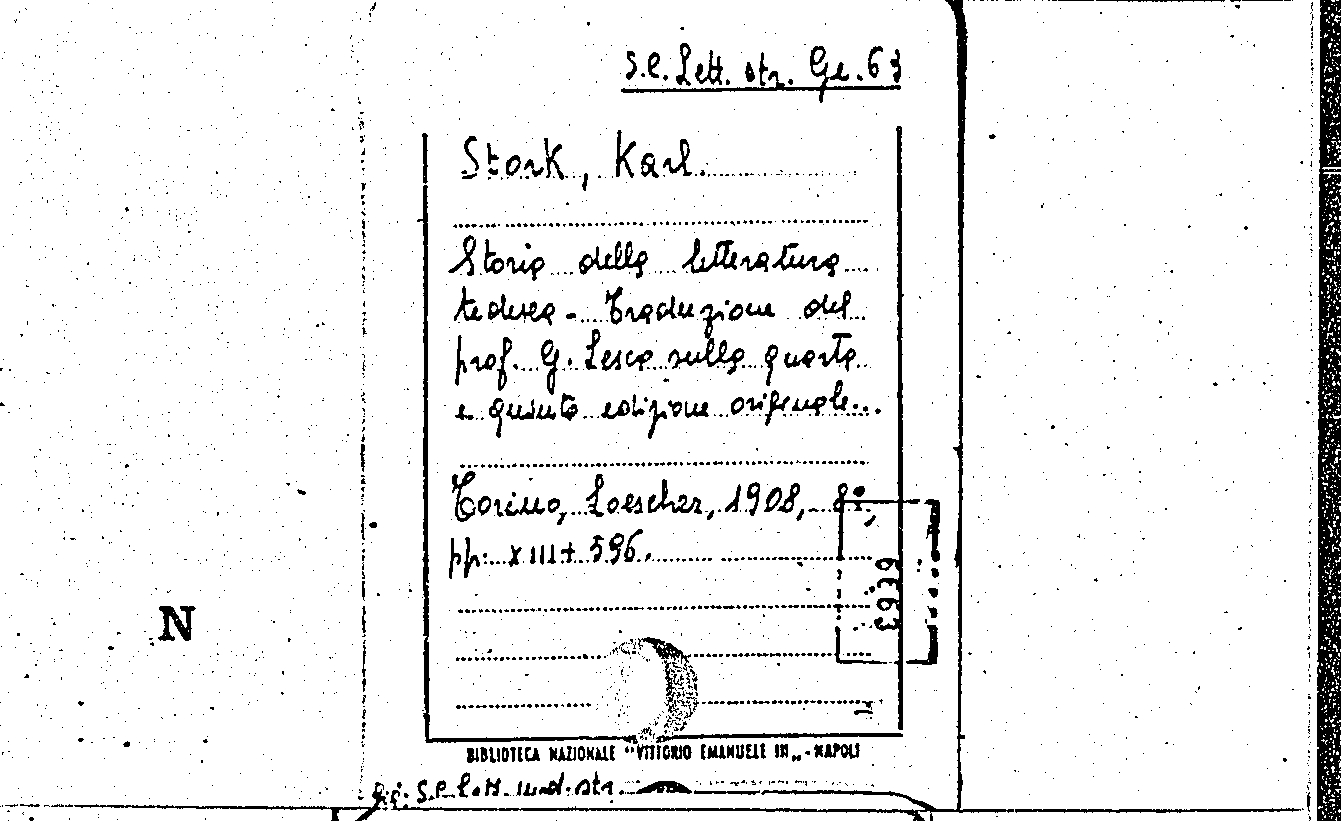 S.C. Lett. str. Ge. 63
Stork, Karl.
Storia della letteratura
tedesca - Traduzione del
prof. G. Lesca sulla quarta
e quinta edizione originale...
Torino, Loescher, 1908, 8°,
pp. XIII + 596.
N
BIBLIOTECA NAZIONALE "VITTORIO EMANUELE III„ - NAPOLI
S.C. Lett. mod. str.